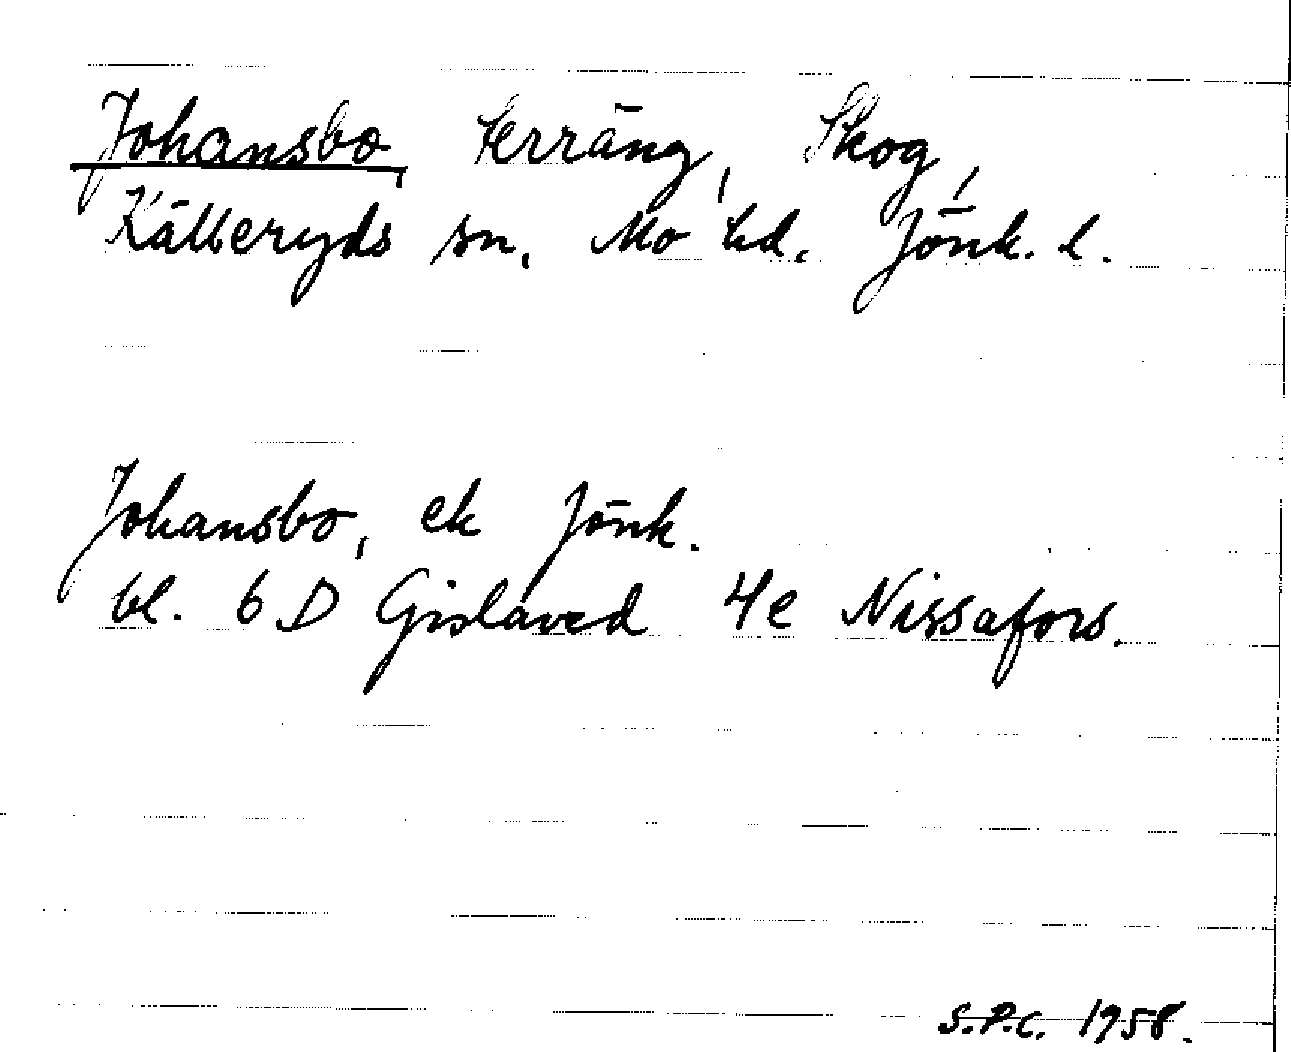 Johansbo, terräng, Skog,
Källeryds sn, Mo hd. Jönk. l.
Johansbo, ek Jönk.
bl. 6 D Gislaved 4e Nissafors.
S.P.C. 1958.